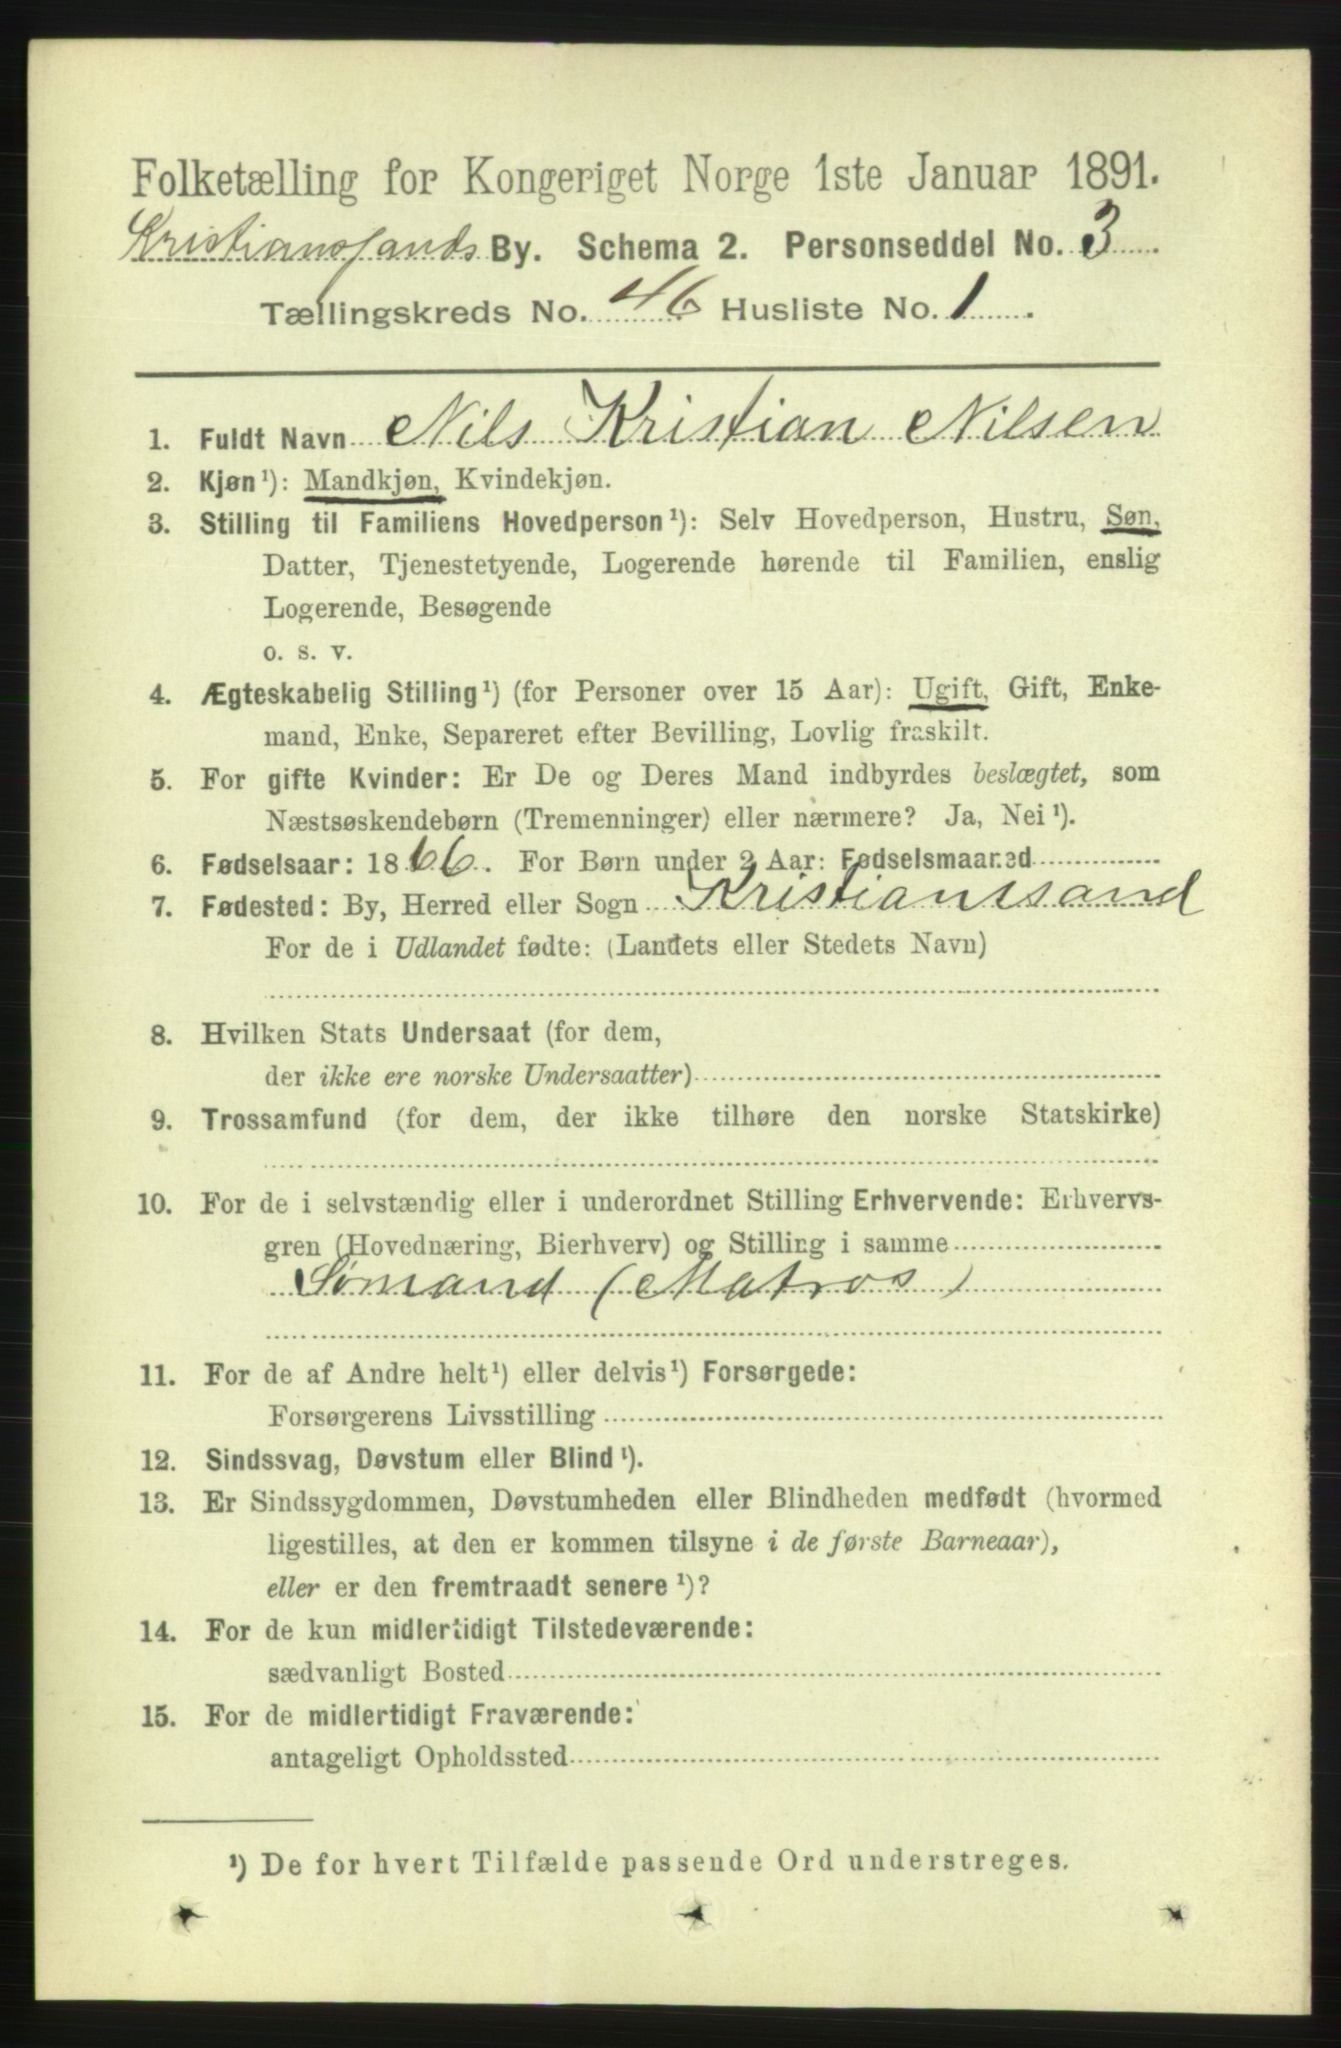 Folketælling for Kongeriget Norge 1ste Januar 1891.
Kristianssands By. Schema 2. Personseddel No. 3
Tællingskreds No. 46 Husliste No. 1
1. Fuldt Navn Nils Kristian Nilsen
2. Kjøn¹): Mandkjøn, Kvindekjøn.
3. Stilling til Familiens Hovedperson¹): Selv Hovedperson, Hustru, Søn,
Datter, Tjenestetyende, Logerende hørende til Familien, enslig
Logerende, Besøgende
o. s. v.
4. Ægteskabelig Stilling¹) (for Personer over 15 Aar): Ugift, Gift, Enke-
mand, Enke, Separeret efter Bevilling, Lovlig fraskilt.
5. For gifte Kvinder: Er De og Deres Mand indbyrdes beslægtet, som
Næstsøskendebørn (Tremenninger) eller nærmere? Ja, Nei¹).
6. Fødselsaar: 1866. For Børn under 2 Aar: Fødselsmaaned
7. Fødested: By, Herred eller Sogn Kristianssand
For de i Udlandet fødte: (Landets eller Stedets Navn)
8. Hvilken Stats Undersaat (for dem,
der ikke ere norske Undersaatter)
9. Trossamfund (for dem, der ikke tilhøre den norske Statskirke)
10. For de i selvstændig eller i underordnet Stilling Erhvervende: Erhvervs-
gren (Hovednæring, Bierhverv) og Stilling i samme
Sömand (Matros)
11. For de af Andre helt¹) eller delvis¹) Forsørgede:
Forsørgerens Livsstilling
12. Sindssvag, Døvstum eller Blind¹).
13. Er Sindssygdommen, Døvstumheden eller Blindheden medfødt (hvormed
ligestilles, at den er kommen tilsyne i de første Barneaar),
eller er den fremtraadt senere¹)?
14. For de kun midlertidigt Tilstedeværende:
sædvanligt Bosted
15. For de midlertidigt Fraværende:
antageligt Opholdssted
¹) De for hvert Tilfælde passende Ord understreges.